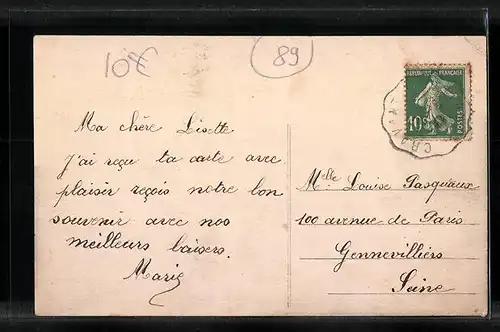 10€
89
RÉPUBLIQUE FRANÇAISE
10c
POSTES
CRAV
Ma chère Lisette
J'ai reçu ta carte avec
plaisir reçois notre bon
souvenir avec nos
meilleurs baisers.
Marie
Melle Louise Pasquaux
100 avenue de Paris
Gennevilliers
Seine